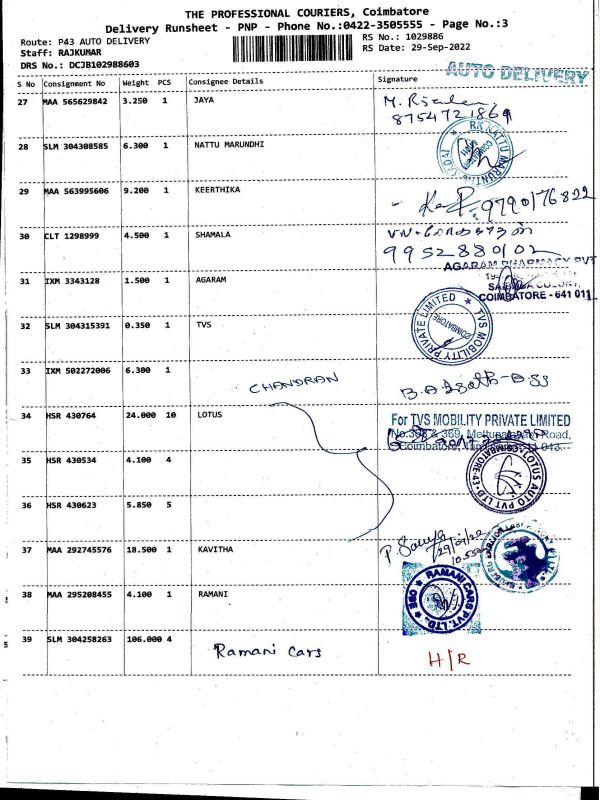 THE PROFESSIONAL COURIERS, Coimbatore
Delivery Runsheet - PNP - Phone No.:0422-3505555 - Page No.:3
Route: P43 AUTO DELIVERY
RS No.: 1029886
Staff: RAJKUMAR
RS Date: 29-Sep-2022
DRS No.: DCJB102988603
AUTO DELIVERY
S No Consignment No Weight PCS Consignee Details Signature
27 MAA 565629842 3.250 1 JAYA
8754721869
28 SLM 304308585 6.300 1 NATTU MARUNDHI
29 MAA 563995606 9.200 1 KEERTHIKA
9790176822
30 CLT 1298999 4.500 1 SHAMALA
9952880102
AGARAM PHARMACY PVT
31 IXM 3343128 1.500 1 AGARAM
COLONY,
COIMBATORE - 641 011
32 SLM 304315391 0.350 1 TVS
TVS MOBILITY PRIVATE LIMITED
COIMBATORE
33 IXM 502272006 6.300 1
CHANDRAN
34 HSR 430764 24.000 10 LOTUS
For TVS MOBILITY PRIVATE LIMITED
No. & 369, Road,
Coimbatore,
35 HSR 430534 4.100 4
LOTUS AUTO PVT LTD
COIMBATORE-43
36 HSR 430623 5.850 5
37 MAA 292745576 18.500 1 KAVITHA
29/09/22
38 MAA 295208455 4.100 1 RAMANI
RAMANI CARS PVT. LTD.
39 SLM 304258263 106.000 4
Ramani Cars
H/R